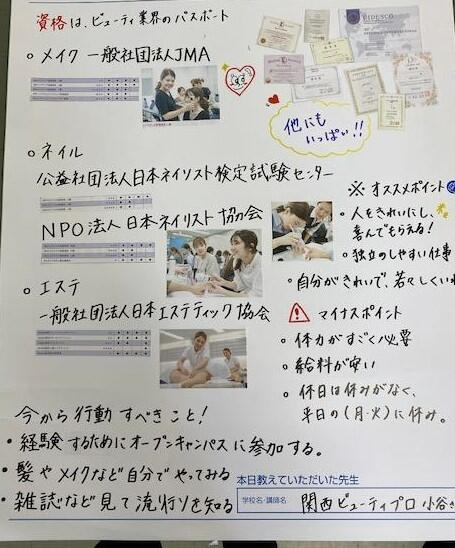 資格は、ビューティ業界のパスポート
○メイク 一般社団法人JMA
他にもいっぱい!!
○ネイル
公益社団法人日本ネイリスト検定試験センター
NPO法人日本ネイリスト協会
○エステ
一般社団法人日本エステティック協会
※オススメポイント
・人をきれいにし、
喜んでもらえる!
・独立のしやすい仕事
・自分がきれいで、若々しくい
⚠ マイナスポイント
・体力がすごく必要
・給料が安い
・休日は休みがなく、
平日の(月・火)に休み。
今から行動すべきこと!
・経験するためにオープンキャンパスに参加する。
・髪やメイクなど自分でやってみる
・雑誌など見て流行りを知る
本日教えていただいた先生
学校名・講師名 関西ビューティプロ 小谷